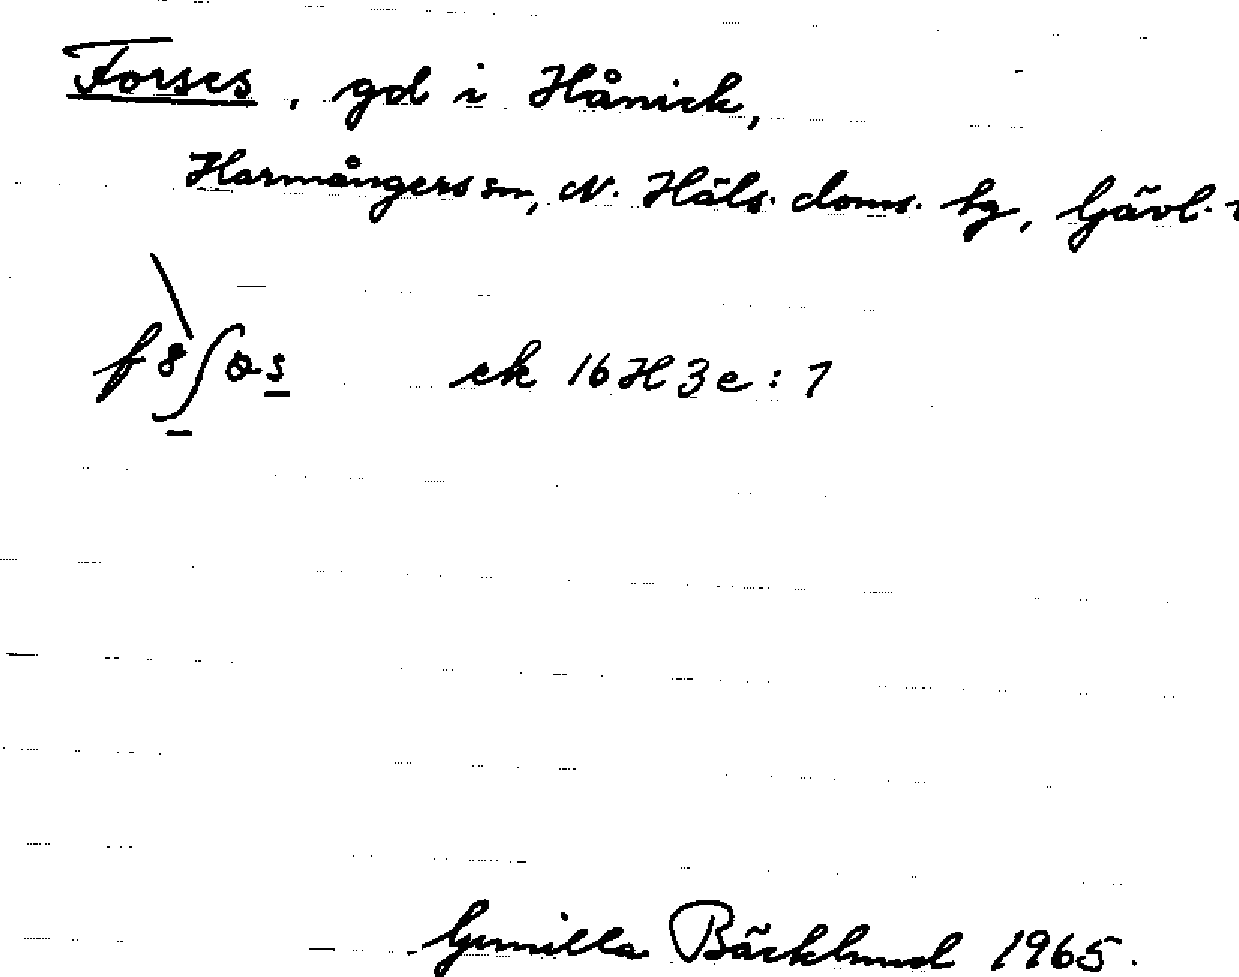 Forses, gd i Hånick,
Harmångers sn, N. Häls. doms. hg, Gävl.
ek 16H3e:7
Gunilla Bäcklund 1965.